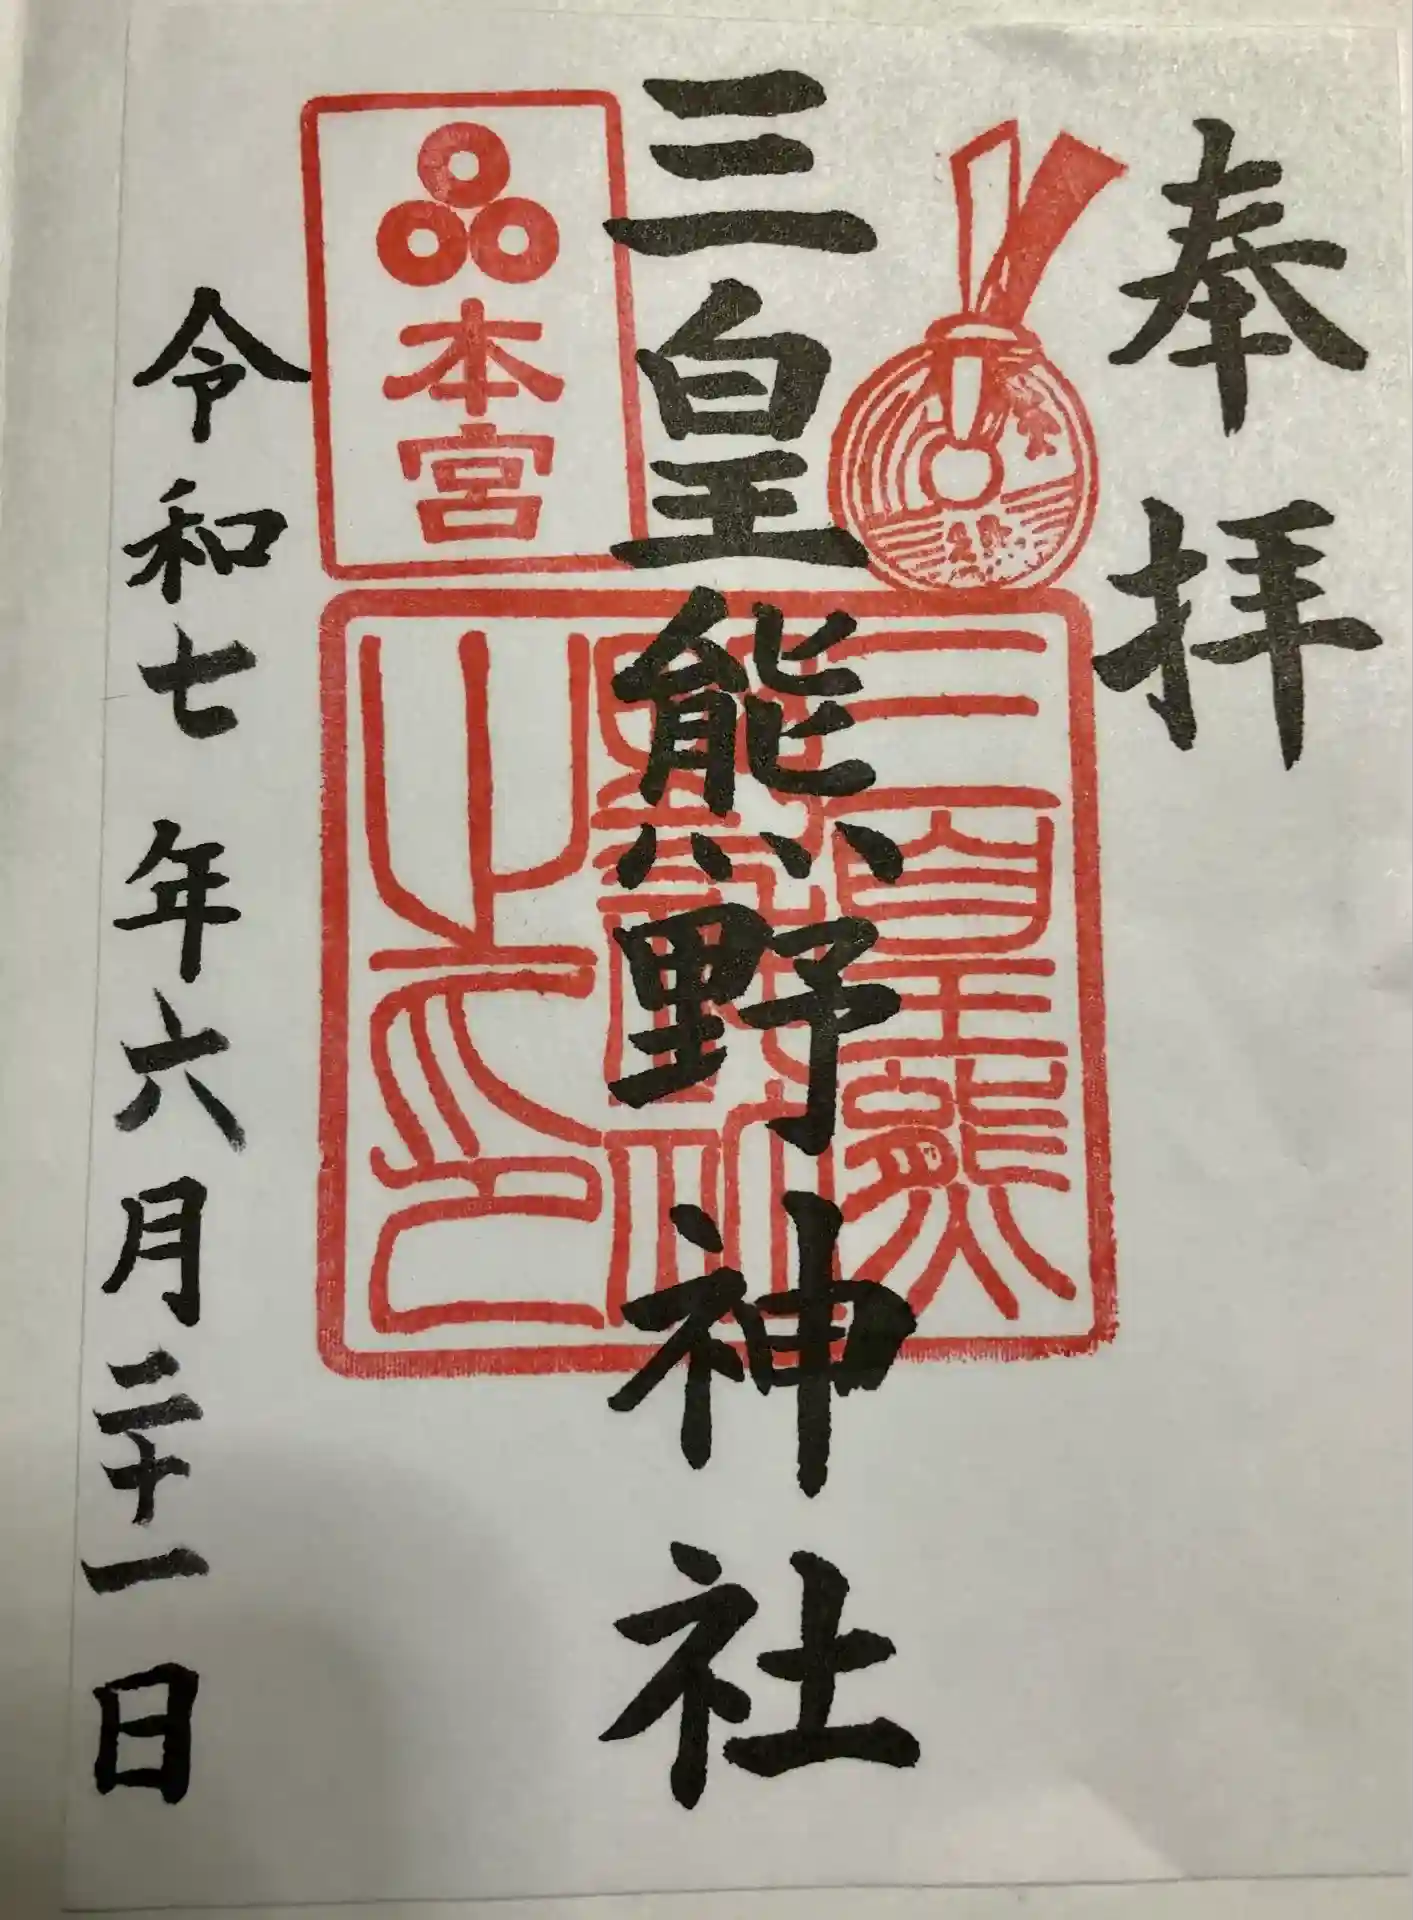 奉拝
三皇熊野神社
本宮
三皇熊
野神社
之印
令和七年六月二十一日